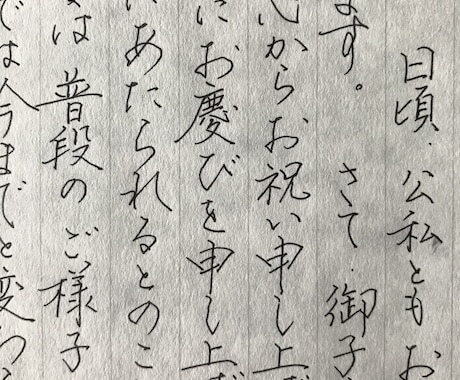 日頃、公私ともお
ます。 さて、御子
心からお祝い申し上
にお慶びを申し上げ
にあたられるとのこ
は 普段のご様子
では今までと変わら